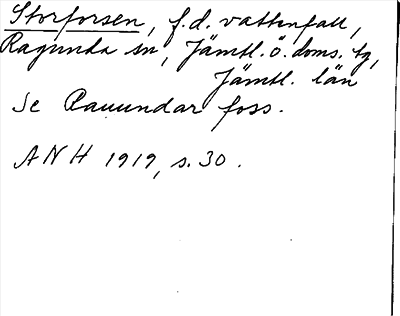 Storforsen, f.d. vattenfall,
Ragunda sn, Jämtl. ö. doms. tg,
Jämtl. län
Se Rauundar foss.
ANH 1919, s. 30.